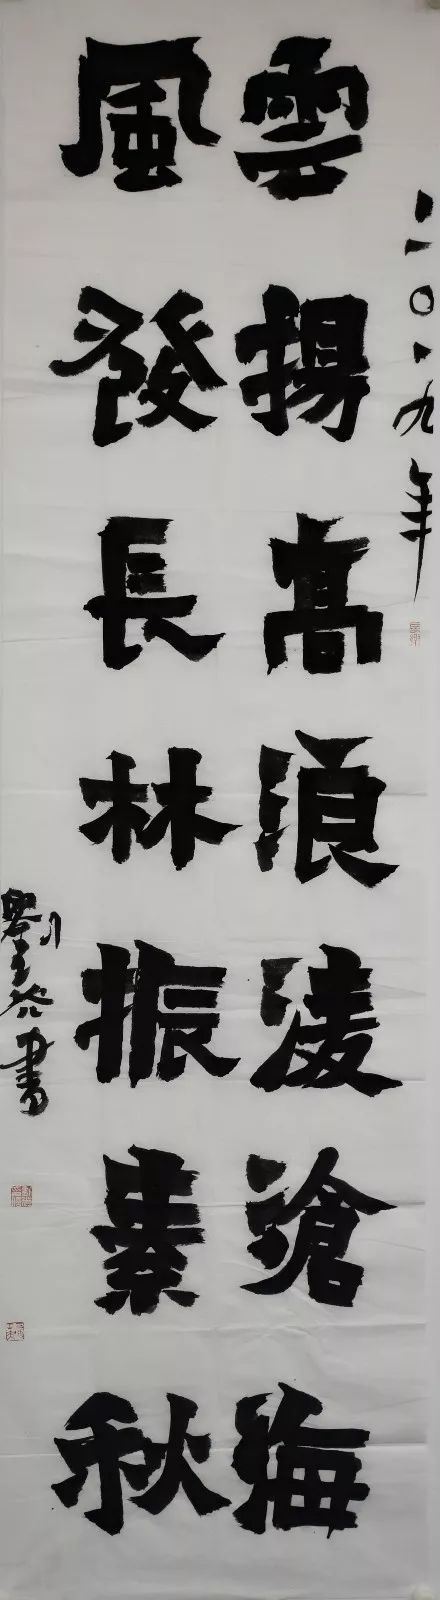 二〇一九年
雲揚高浪凌滄海
風發長林振素秋
劉
書